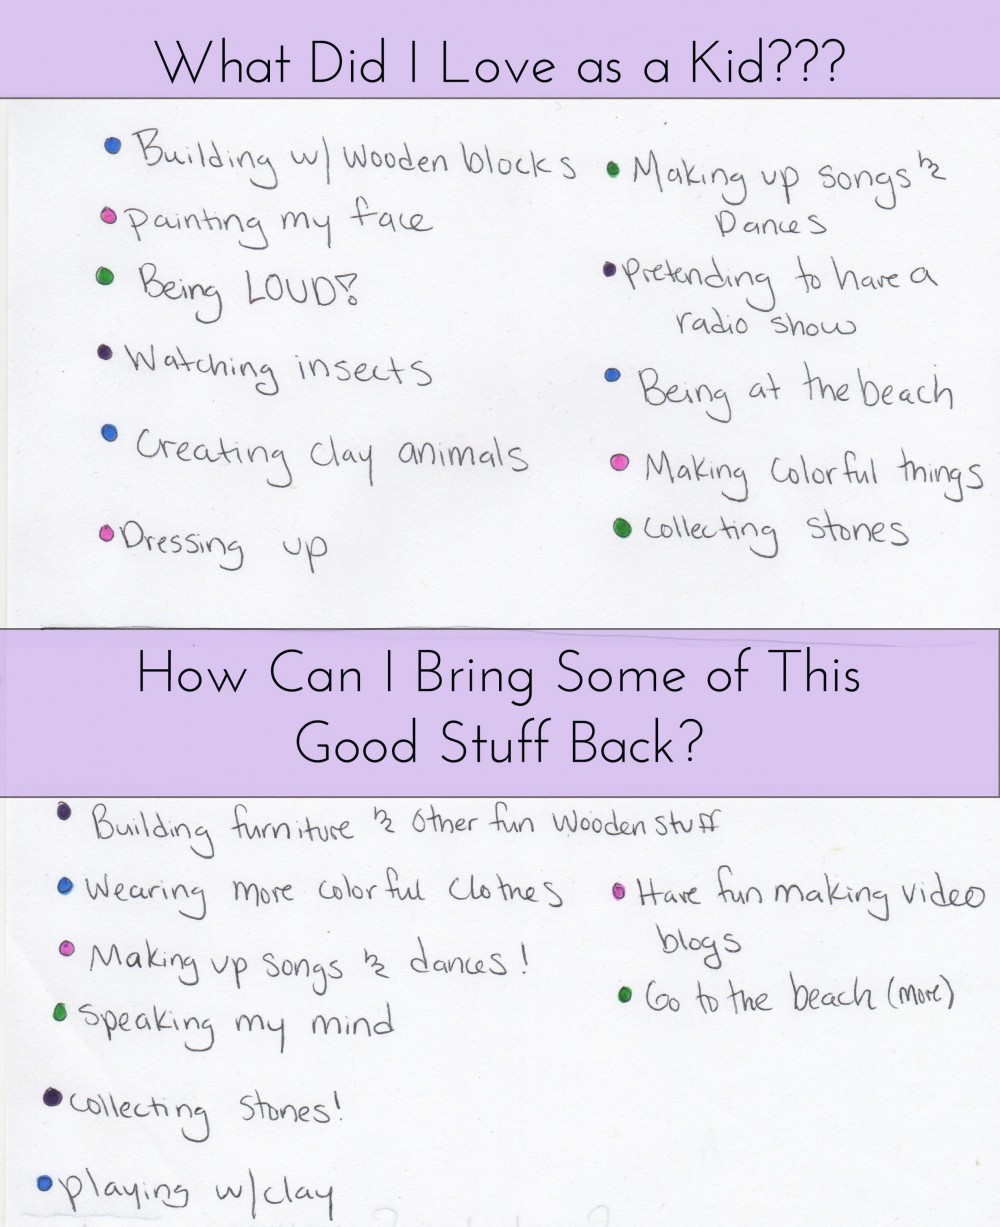 What Did I Love as a Kid???
• Building w/ wooden blocks
• Painting my face
• Being LOUD!
• Watching insects
• Creating clay animals
• Dressing up
• Making up songs &
Dances
• Pretending to have a
radio show
• Being at the beach
• Making colorful things
• Collecting stones
How Can I Bring Some of This
Good Stuff Back?
• Building furniture & other fun wooden stuff
• Wearing more colorful clothes
• Making up songs & dances!
• Speaking my mind
• Collecting stones!
• playing w/clay
• Have fun making video
blogs
• Go to the beach (more)